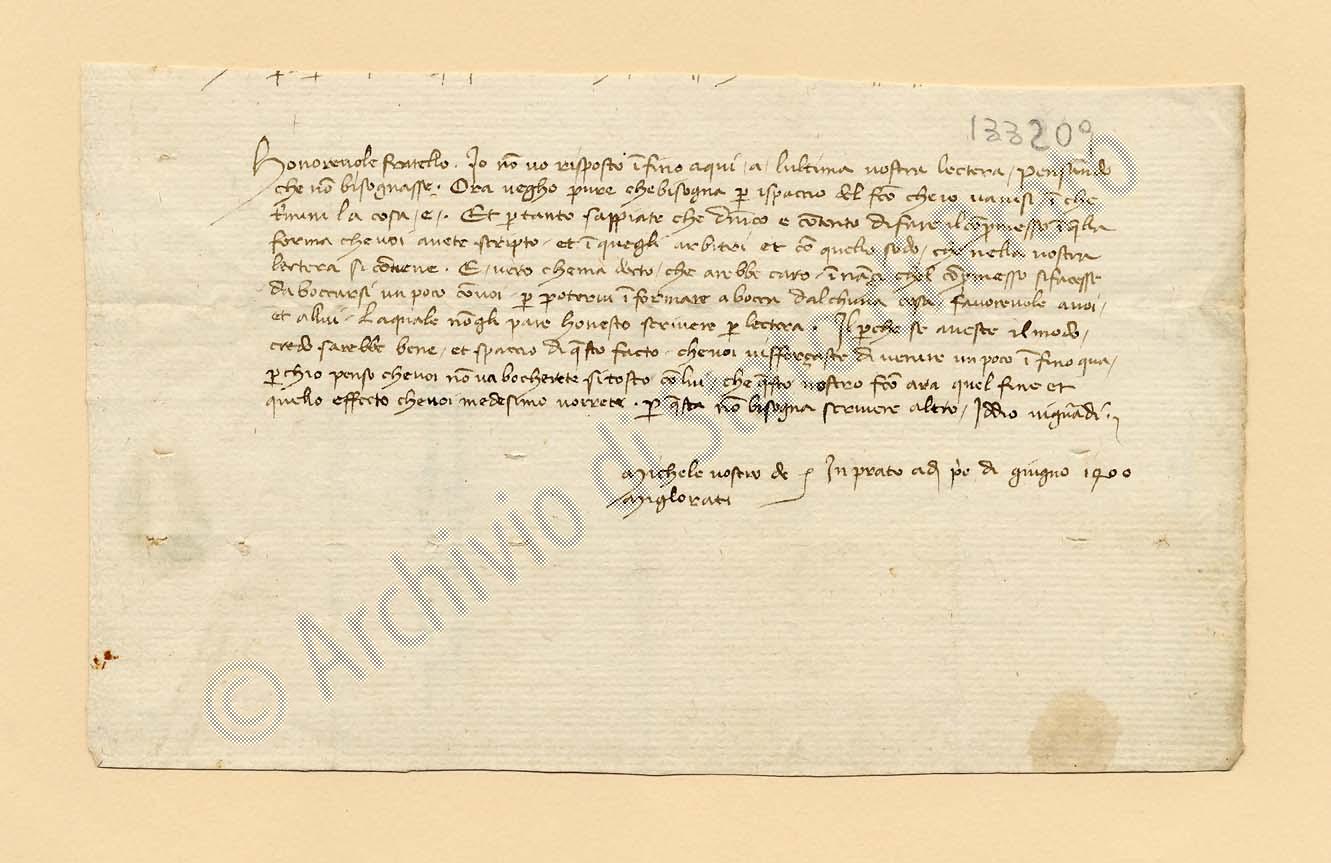 133209
Honorevole fratello. Io nō vo risposto īfino aqui, a, lultima vostra lectera, pensādo
che nō bisognasse. Ora vegho pure chebisogna p̄ ispaccio del fc̄o cheio vavisi ī che
la cosa, e,. Et p̄ tanto sappiate che e cōtento difare il cōpromesso ī q̄lla
forma chevoi avete scripto, et ī quegli arbitri et cō quello sodo, che nella vostra
lectera si cōtiene. E, vero chema decto, che arebbe caro, īnāzi chel cōpromesso sifacesse
daboccarsi un poco cōvoi, p̄ potervi īformare abocca dalchuna cosa favorevole avoi,
et allui, Laquale nōgli pare honesto scrivere p̄ lectera. Il p̄che se aveste ilmodo,
credo sarebbe bene, et spaccio di q̄sto facto, chevoi visforçaste di venire un poco īfino qua,
p̄chio penso chevoi nō vabocherete sitosto cōlui, che q̄sto vostro fc̄o ara quel fine et
quello effecto chevoi medesimo vorrete. p̄ q̄sta nō bisogna scrivere altro, Iddio viguādi.
Michele vostro de In prato adi p̄o di giugno 1400
Miglorati
© Archivio di Stato di Prato